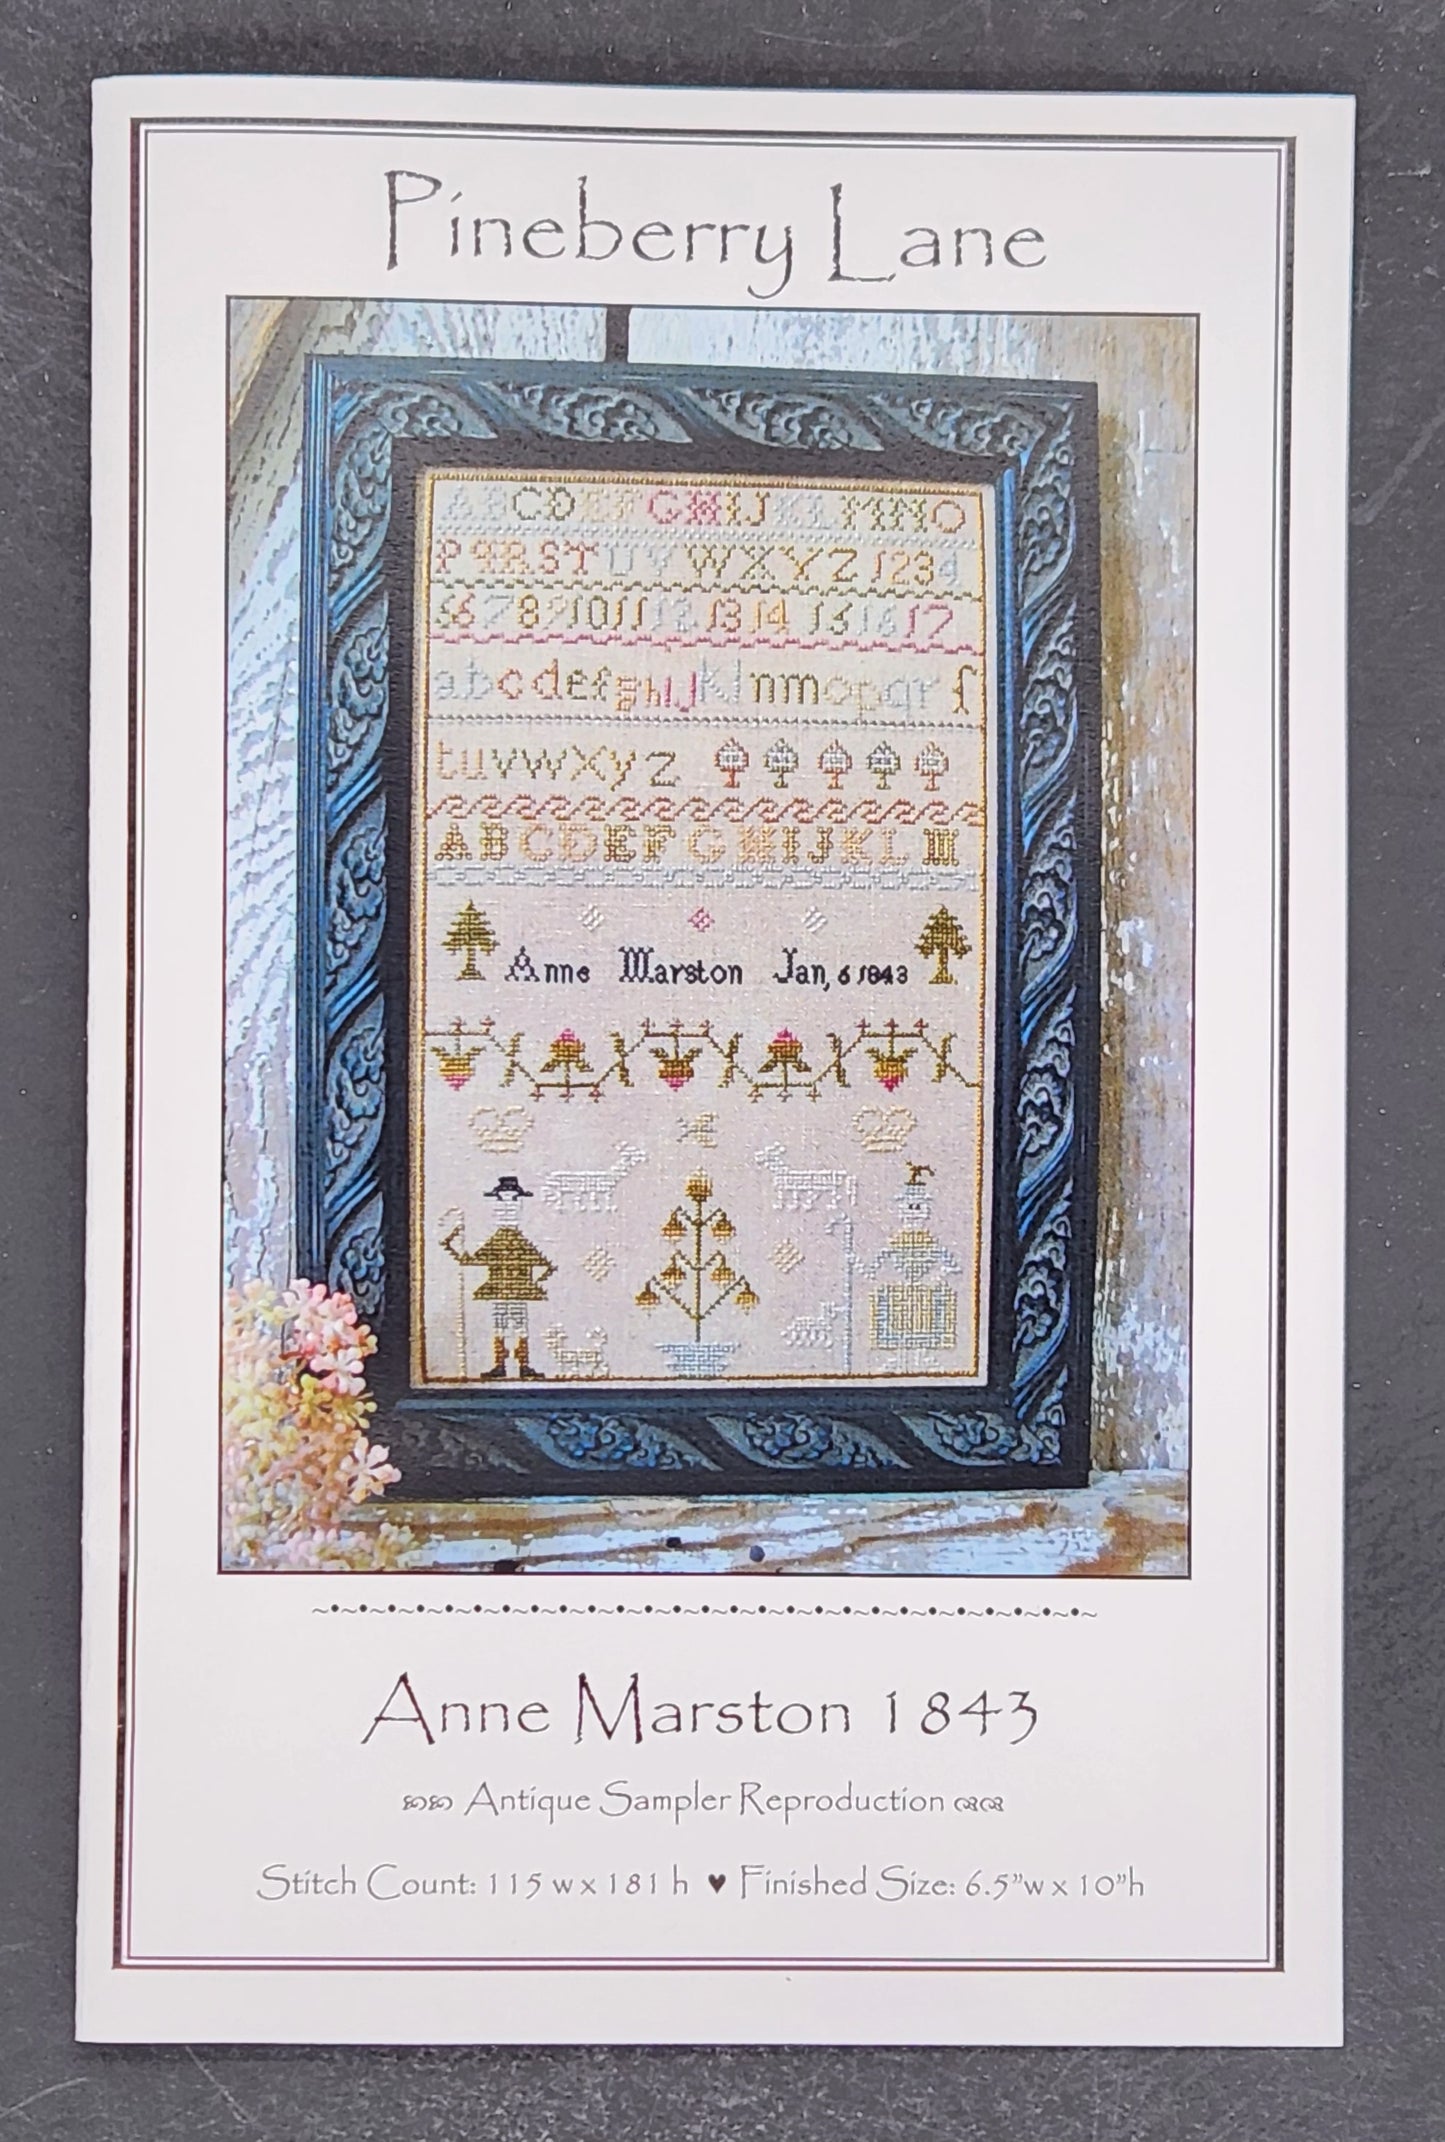 Pineberry Lane
ABCDEFGHIJKLMNO
PQRSTUVWXYZ 1234
567891011121314 161617
abcdefghIJklnmopqrſ
tuvwxyz
ABCDEFGHIJKLM
Anne Marston Jan, 6 1843
Anne Marston 1843
Antique Sampler Reproduction
Stitch Count: 115 w x 181 h ♥ Finished Size: 6.5”w x 10”h